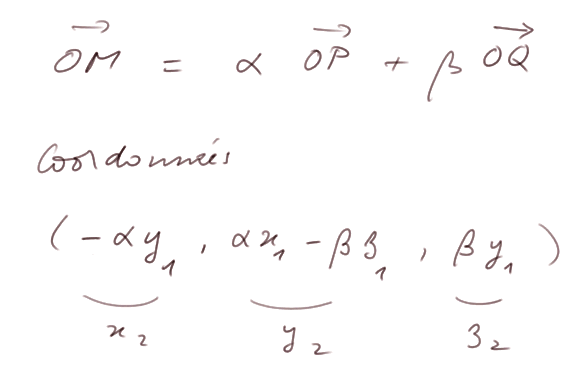 →OM = α →OP + β →OQ
Coordonnées
(-αy₁, αx₁ - βz₁, βy₁)
x₂ y₂ z₂